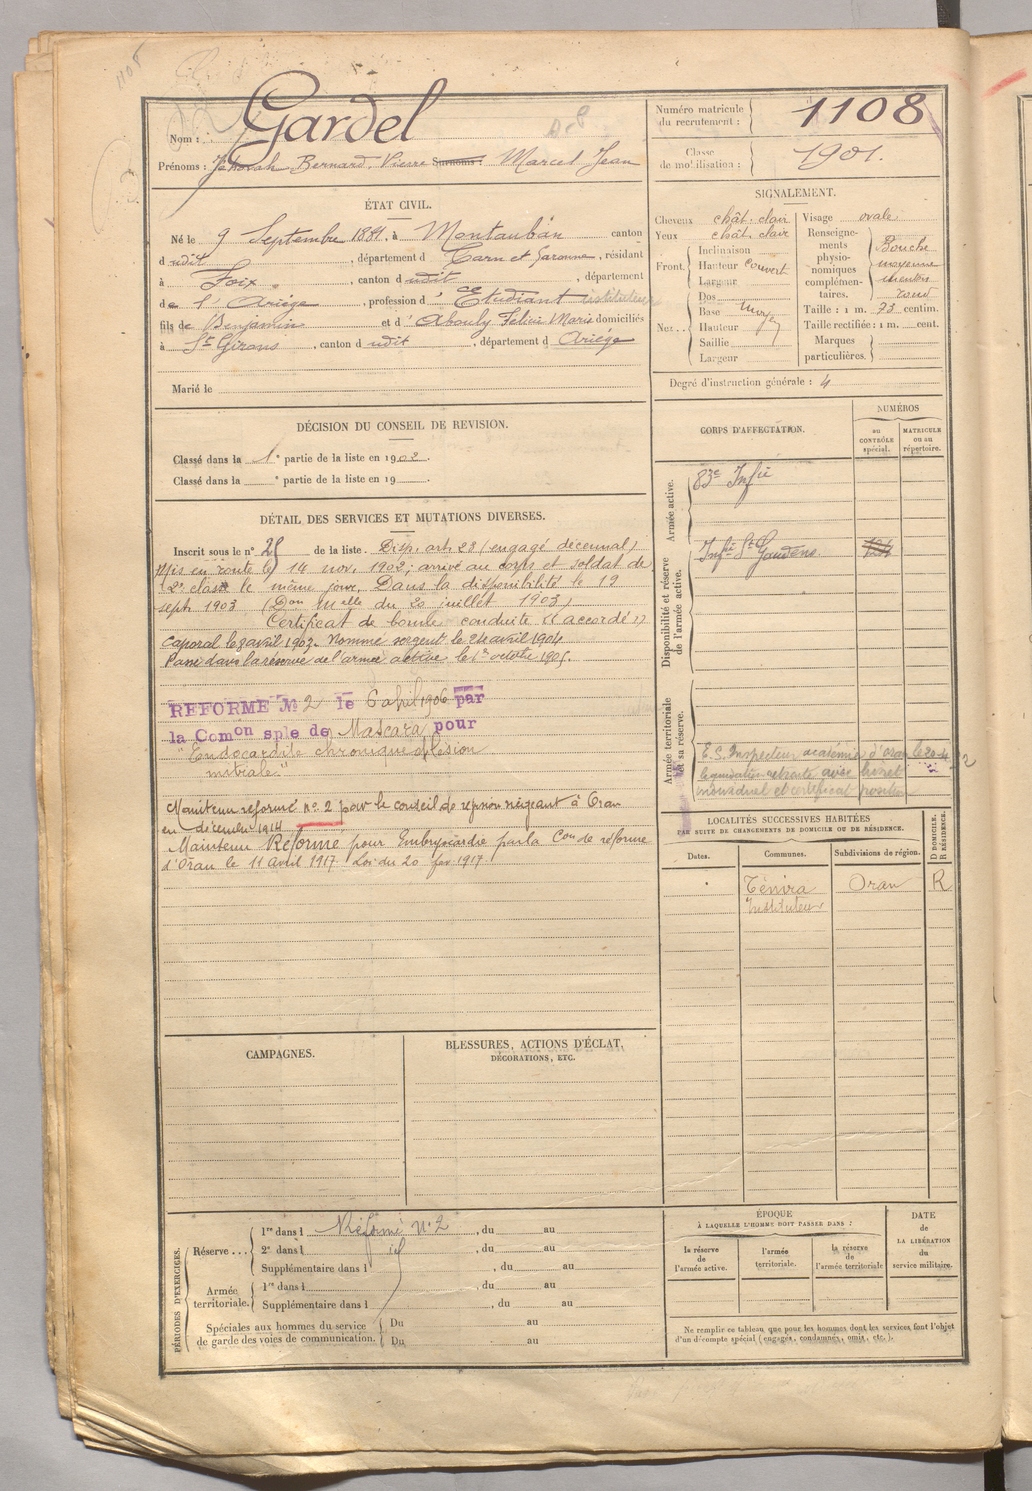 1108
Nom : Gardel
Prénoms : Jehovah Bernard Pierre Surnoms : Marcel Jean
Numéro matricule du recrutement : 1108
Classe de mobilisation : 1901.
ÉTAT CIVIL.
Né le 9 Septembre 1881. à Montauban canton
d udit , département d Tarn et Garonne, résidant
à Foix , canton d udit , département
de l'Ariège , profession d' Etudiant instituteur
fils de Benjamin et d' Abouly Félicie Marie domiciliés
à St Girons , canton d udit , département d Ariège
Marié le
SIGNALEMENT.
Cheveux chât. clair
Yeux chât. clair
Front. Inclinaison
Hauteur couvert
Largeur
Nez. Dos
Base moyen
Hauteur
Saillie
Largeur
Visage ovale
Renseignements physionomiques complémentaires. Bouche moyenne menton rond
Taille : 1 m. 73 centim.
Taille rectifiée : 1 m. cent.
Marques particulières.
Degré d'instruction générale : 4
DÉCISION DU CONSEIL DE REVISION.
Classé dans la 1e partie de la liste en 1902.
Classé dans la e partie de la liste en 19
DÉTAIL DES SERVICES ET MUTATIONS DIVERSES.
Inscrit sous le n° 25 de la liste. Disp. art. 23 (engagé décennal)
Mis en route le 14 nov. 1902; arrivé au corps et soldat de
2e classe le même jour. Dans la disponibilité le 19
sept. 1903 (Don Melle du 20 juillet 1903)
Certificat de bonne conduite "accordé"
Caporal le 3 avril 1903. Nommé sergent le 24 avril 1904
Passé dans la réserve de l'armée active le 1er octobre 1905.
REFORMÉ N° 2 le 6 avril 1906 par
la Comon sple de Mascara pour
"Endocardite chronique lésion
mitrale."
Maintenu réformé no 2 par le conseil de révision siégeant à Oran
en décembre 1914
Maintenu Réformé pour Embryocardie par la Con de réforme
d'Oran le 11 avril 1917 Loi du 20 fév. 1917.
CORPS D'AFFECTATION.
NUMÉROS
au CONTRÔLE spécial.
MATRICULE ou au répertoire.
Armée active.
83e Infie
Disponibilité et réserve de l'armée active.
Infie St Gaudens
Armée territoriale et sa réserve.
E.S. Inspecteur académie d'Oran le 20-4-22
liquidation retraite avec livret
individuel et certificat position
LOCALITÉS SUCCESSIVES HABITÉES
PAR SUITE DE CHANGEMENTS DE DOMICILE OU DE RÉSIDENCE.
Dates. Communes. Subdivisions de région. D DOMICILE. R RÉSIDENCE.
Ténira Oran R
Instituteur
CAMPAGNES.
BLESSURES, ACTIONS D'ÉCLAT,
DÉCORATIONS, ETC.
PÉRIODES D'EXERCICES.
Réserve... 1re dans l Réformé N° 2 , du au
2e dans l id , du au
Supplémentaire dans l , du au
Armée territoriale. 1re dans l , du au
Supplémentaire dans l , du au
Spéciales aux hommes du service Du au
de garde des voies de communication. Du au
ÉPOQUE
À LAQUELLE L'HOMME DOIT PASSER DANS :
la réserve de l'armée active.
l'armée territoriale.
la réserve de l'armée territoriale
DATE de LA LIBÉRATION du service militaire.
Ne remplir ce tableau que pour les hommes dont les services font l'objet
d'un décompte spécial (engagés, condamnés, omis, etc.).